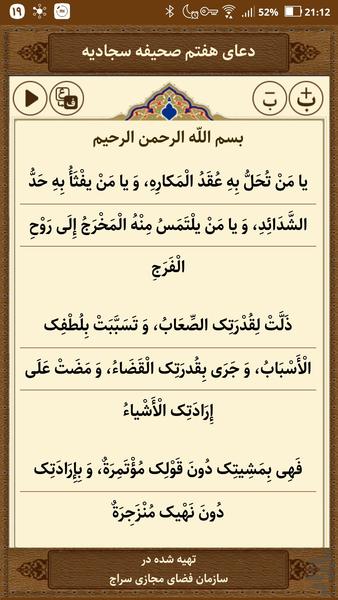 ۱۹ 52% 21:12
دعای هفتم صحیفه سجادیه
بسم اللّه الرحمن الرحیم
یا مَنْ تُحَلُّ بِهِ عُقَدُ الْمَکارِهِ، وَ یا مَنْ یفْثَأُ بِهِ حَدُّ
الشَّدَائِدِ، وَ یا مَنْ یلْتَمَسُ مِنْهُ الْمَخْرَجُ إِلَی رَوْحِ
الْفَرَجِ
ذَلَّتْ لِقُدْرَتِک الصِّعَابُ، وَ تَسَبَّبَتْ بِلُطْفِک
الْأَسْبَابُ، وَ جَرَی بِقُدرَتِک الْقَضَاءُ، وَ مَضَتْ عَلَی
إِرَادَتِک الْأَشْیاءُ
فَهِی بِمَشِیتِک دُونَ قَوْلِک مُؤْتَمِرَةٌ، وَ بِإِرَادَتِک
دُونَ نَهْیک مُنْزَجِرَةٌ
تهیه شده در
سازمان فضای مجازی سراج